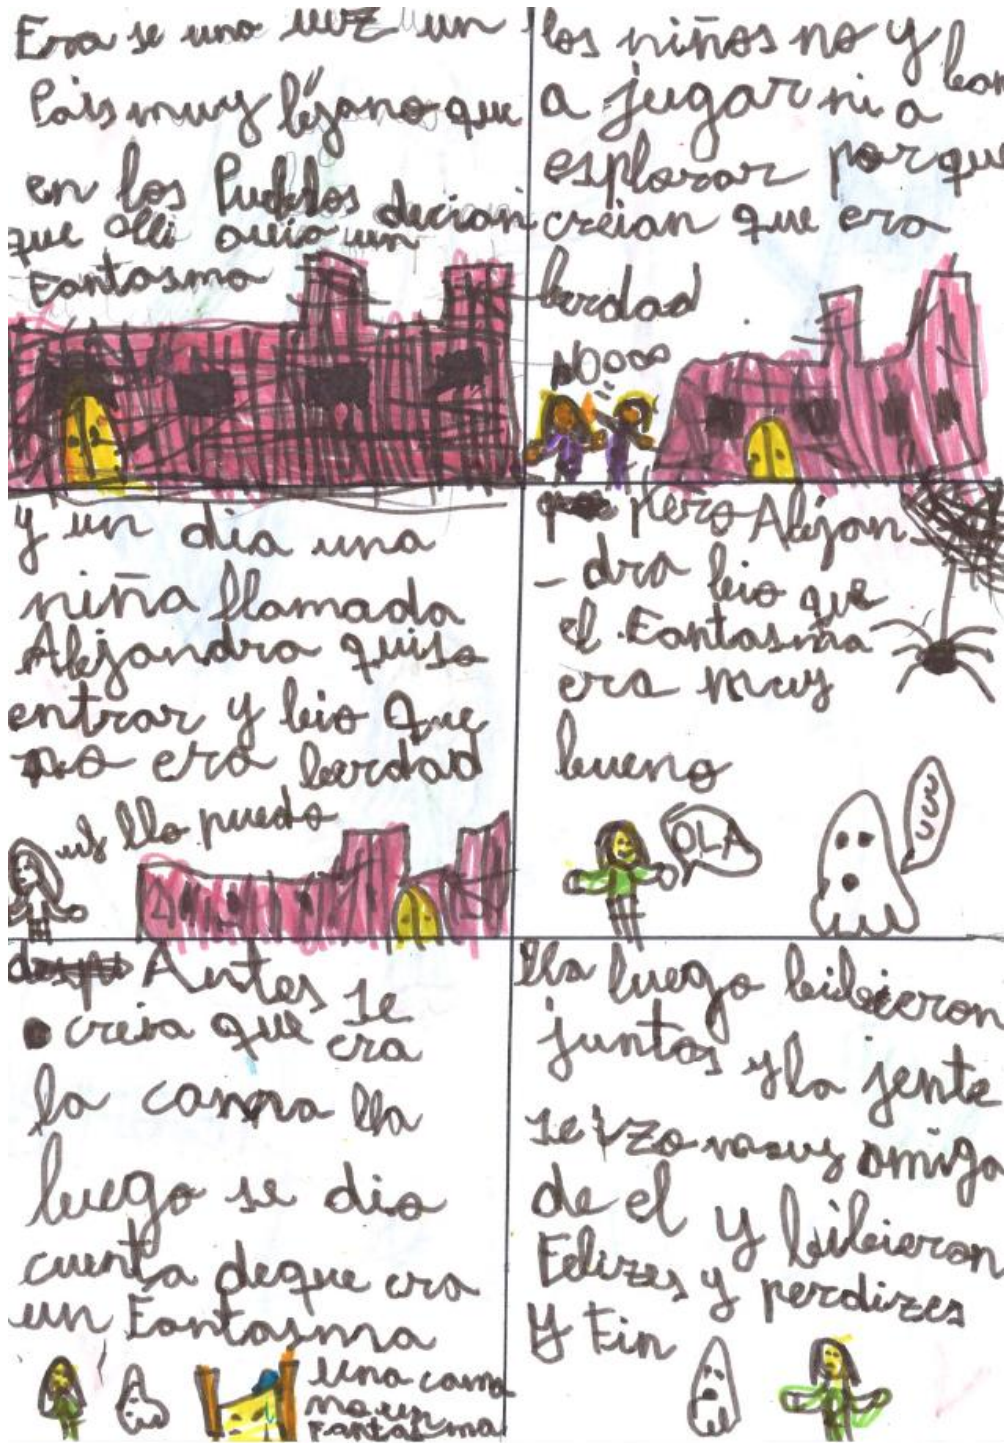 Era se una vez un
País muy lejano que
en los Pueblos decian
que alli avia un
Fantasma
los niños no y ban
a jugar ni a
esplorar porque
creian que era
berdad
NOooo
y un dia una
niña llamada
Alejandra quiso
entrar y bio que
no era berdad
llo puedo
pero Alejan-
-dra bio que
el Fantasma
era muy
bueno
OLA
UUU
Antes se
creia que era
la cama lla
luego se dio
cuenta deque era
un Fantasma
una cama
no un
Fantasma
lla luego bibieron
juntos y la jente
se izo muy amiga
de el y bibieron
Felizes y perdizes
y Fin